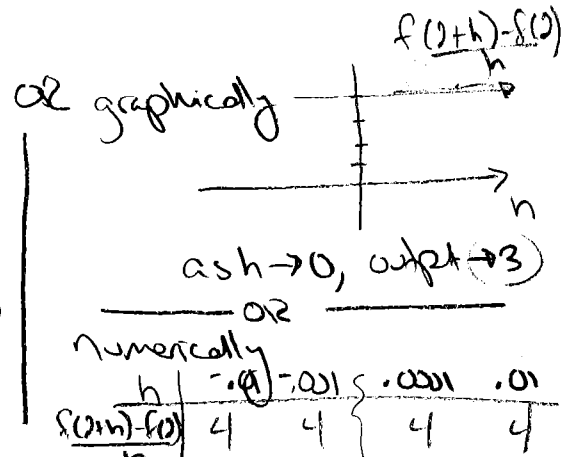 f(2+h)-f(2)
h
OR graphically
h
as h→0, output→3
OR
numerically
h -.01 -.001 .0001 .01
f(2+h)-f(2) 4 4 4 4
h